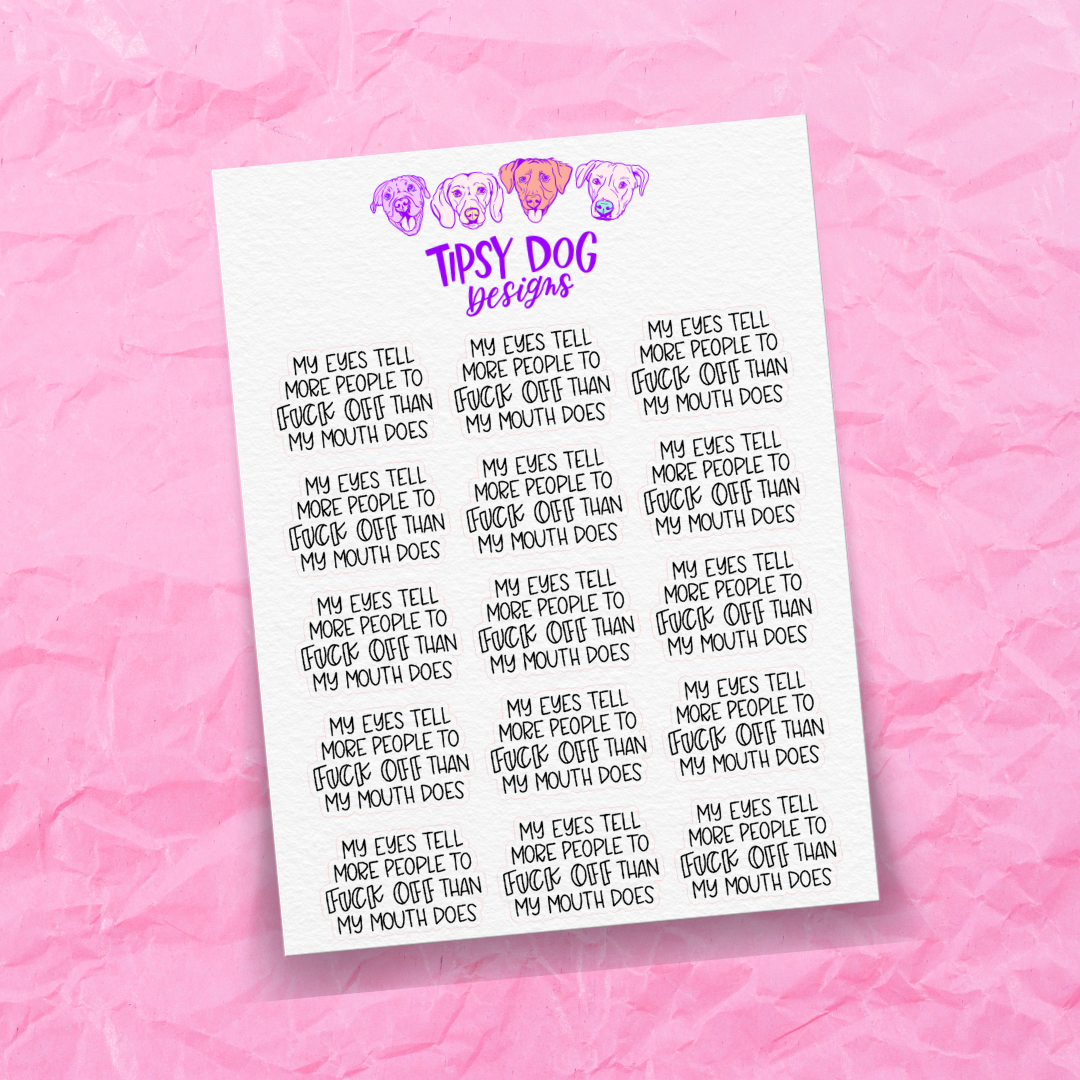 TIPSY DOG
Designs
MY EYES TELL
MORE PEOPLE TO
FUCK OFF THAN
MY MOUTH DOES
MY EYES TELL
MORE PEOPLE TO
FUCK OFF THAN
MY MOUTH DOES
MY EYES TELL
MORE PEOPLE TO
FUCK OFF THAN
MY MOUTH DOES
MY EYES TELL
MORE PEOPLE TO
FUCK OFF THAN
MY MOUTH DOES
MY EYES TELL
MORE PEOPLE TO
FUCK OFF THAN
MY MOUTH DOES
MY EYES TELL
MORE PEOPLE TO
FUCK OFF THAN
MY MOUTH DOES
MY EYES TELL
MORE PEOPLE TO
FUCK OFF THAN
MY MOUTH DOES
MY EYES TELL
MORE PEOPLE TO
FUCK OFF THAN
MY MOUTH DOES
MY EYES TELL
MORE PEOPLE TO
FUCK OFF THAN
MY MOUTH DOES
MY EYES TELL
MORE PEOPLE TO
FUCK OFF THAN
MY MOUTH DOES
MY EYES TELL
MORE PEOPLE TO
FUCK OFF THAN
MY MOUTH DOES
MY EYES TELL
MORE PEOPLE TO
FUCK OFF THAN
MY MOUTH DOES
MY EYES TELL
MORE PEOPLE TO
FUCK OFF THAN
MY MOUTH DOES
MY EYES TELL
MORE PEOPLE TO
FUCK OFF THAN
MY MOUTH DOES
MY EYES TELL
MORE PEOPLE TO
FUCK OFF THAN
MY MOUTH DOES